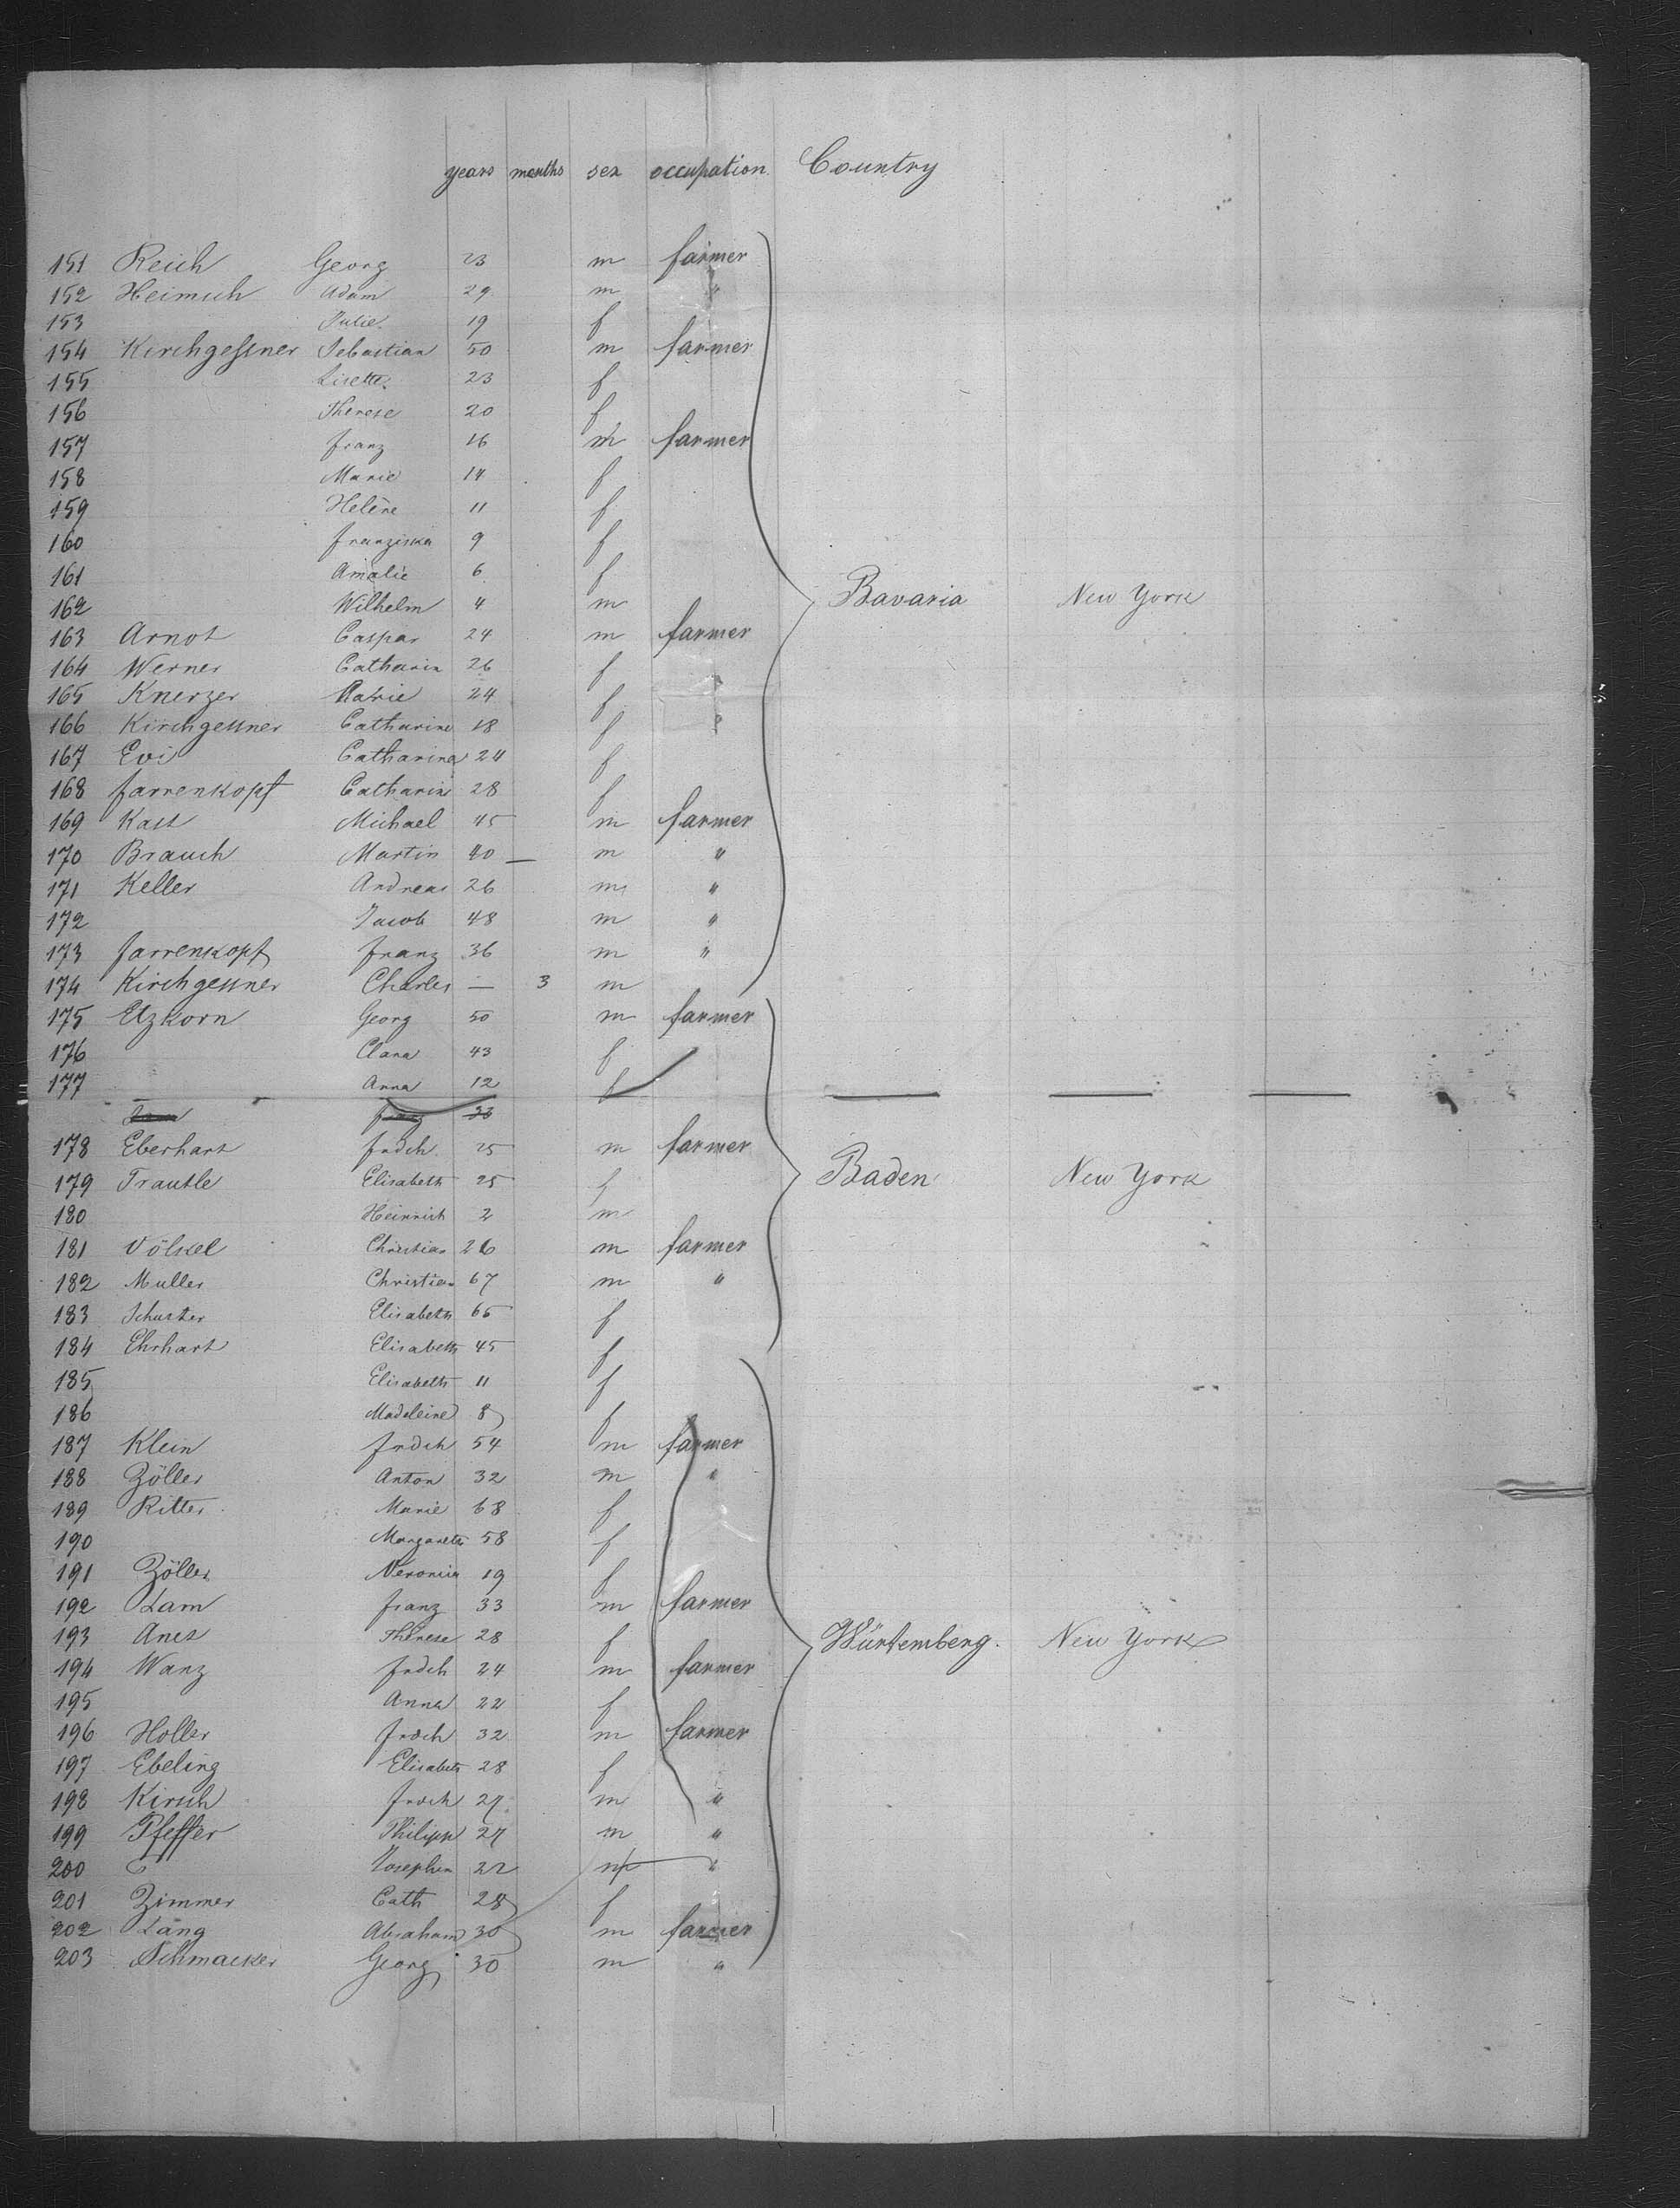 years months sex occupation Country
151 Reich Georg 23 m farmer
152 Heimich Adam 29 m "
153 Julie 19 f
154 Kirchgessner Sebastian 50 m farmer
155 Lisette 23 f
156 Therese 20 f
157 Franz 16 m farmer
158 Marie 14 f
159 Helène 11 f
160 Franziska 9 f
161 Amalie 6 f
162 Wilhelm 4 m Bavaria New York
163 Arnot Caspar 24 m farmer
164 Werner Catharin 26 f "
165 Knerzer Marie 24 f
166 Kirchgessner Catharine 18 f "
167 Evi Catharina 24 f
168 Farrenkopf Catharin 28 f
169 Kast Michael 45 m farmer
170 Brauch Martin 40 — m "
171 Keller Andreas 26 m "
172 Jacob 48 m "
173 Farrenkopf Franz 36 m "
174 Kirchgessner Charles — 3 m
175 Etzkorn Georg 50 m farmer
176 Clara 43 f
177 Anna 12 f
Franz 33
178 Eberhart Frdch 25 m farmer
179 Trautle Elisabeth 25 f Baden New York
180 Heinrich 2 m
181 Völkel Christian 26 m farmer
182 Muller Christian 67 m "
183 Schuster Elisabeth 65 f
184 Ehrhart Elisabeth 45 f
185 Elisabeth 11 f
186 Madeleine 8 f
187 Klein Frdch 54 m farmer
188 Zöller Anton 32 m "
189 Ritter Marie 68 f
190 Margareta 58 f
191 Zöller Veronica 19 f
192 Lam Franz 33 m farmer
193 Anes Therese 28 f Würtemberg. New York
194 Wanz Frdch 24 m farmer
195 Anna 22 f
196 Holler Frdch 32 m farmer
197 Ebeling Elisabeth 28 f
198 Kirsch Frdch 27 m "
199 Pfeffer Philipp 27 m "
200 Josephin 22 "
201 Zimmer Cath 28 f
202 Läng Abraham 30 m farmer
203 Schmacker Georg 30 m "